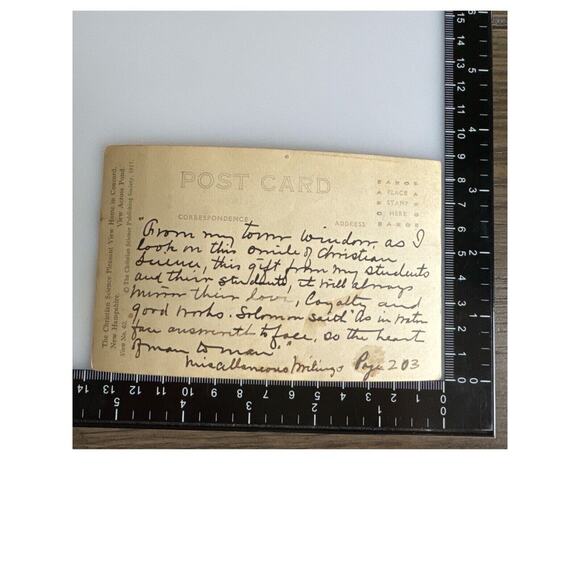 POST CARD
CORRESPONDENCE
ADDRESS
PLACE
STAMP
HERE
The Christian Science Pleasant View Home in Concord,
New Hampshire. View Across Pond.
View No. 62. © The Christian Science Publishing Society, 1927.
"From my tower window, as I
look on this smile of Christian
Science, this gift from my students
and their students, it will always
mirror their love, loyalty and
good works. Solomon said "As in water
face answereth to face, so the heart
of man to man."
Miscellaneous Writings Page 203
15 14 13 12 11 10 9 8 7 6 5 4 3 2 1 0
5 4 3 2 1
14 13 12 11 10 9 8 7 6 5 4 3 2 1 0
5 4 3 2 1